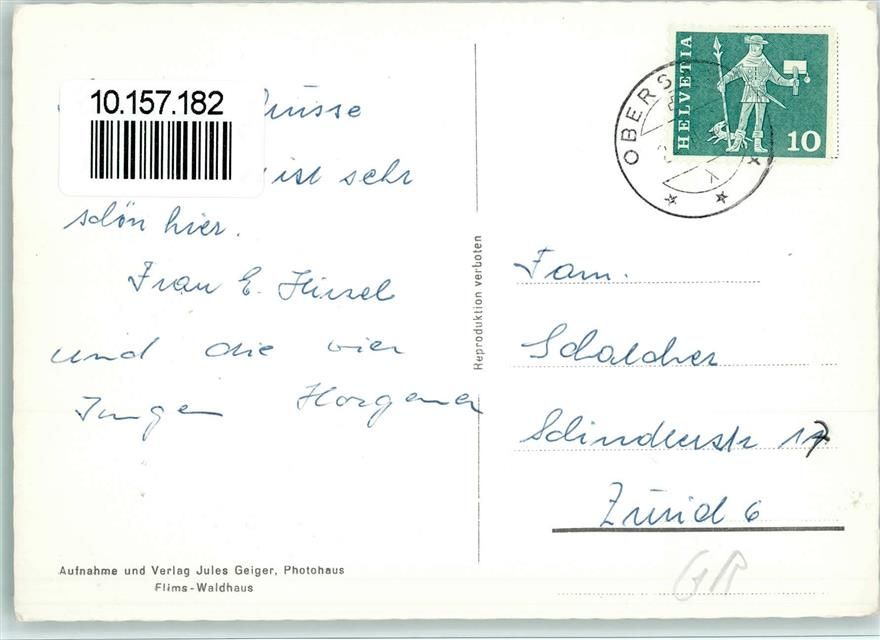 10.157.182
ist sehr
schön hier.
Frau E. Hirzel
und die vier
Jungen Horgener
Aufnahme und Verlag Jules Geiger, Photohaus
Flims-Waldhaus
Reproduktion verboten
HELVETIA
10
OBERS
Fam.
Schalcher
17
Zürich 6
GR